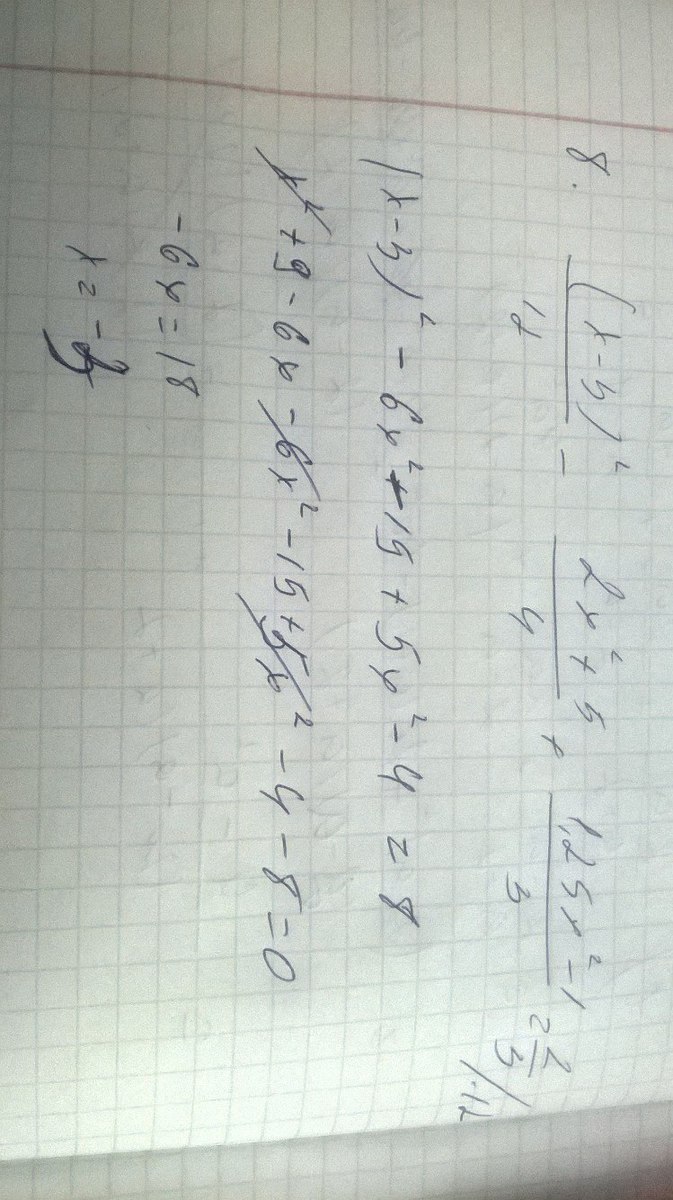 8. (x-3)²/12 - (2x²+5)/4 + (1,25x²-1)/3 = 2/3 /·12
(x-3)² - 6x² - 15 + 5x² - 4 = 8
x² + 9 - 6x - 6x² - 15 + 5x² - 4 - 8 = 0
-6x = 18
x = -3